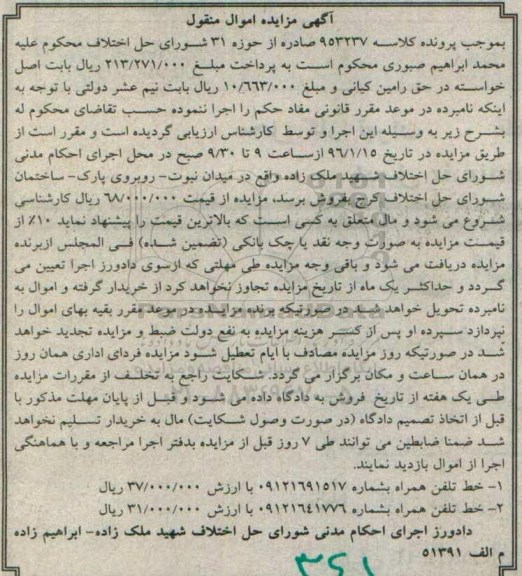 آگهی مزایده اموال منقول
بموجب پرونده کلاسه ۹۵۳۲۳۷ صادره از حوزه ۳۱ شورای حل اختلاف محکوم علیه
محمد ابراهیم صبوری محکوم است به پرداخت مبلغ ۲۱۳/۲۷۱/۰۰۰ ریال بابت اصل
خواسته در حق رامین کیانی و مبلغ ۱۰/۶۶۳/۰۰۰ ریال بابت نیم عشر دولتی با توجه به
اینکه نامبرده در موعد مقرر قانونی مفاد حکم را اجرا ننموده حسب تقاضای محکوم له
بشرح زیر به وسیله این اجرا و توسط کارشناس ارزیابی گردیده است و مقرر است از
طریق مزایده در تاریخ ۹۶/۱/۱۵ ازساعت ۹ تا ۹/۳۰ صبح در محل اجرای احکام مدنی
شورای حل اختلاف شهید ملک زاده واقع در میدان نبوت- روبروی پارک- ساختمان
شورای حل اختلاف کرج بفروش برسد، مزایده از قیمت ۶۸/۰۰۰/۰۰۰ ریال کارشناسی
شروع می شود و مال متعلق به کسی است که بالاترین قیمت را پیشنهاد نماید ۱۰٪ از
قیمت مزایده به صورت وجه نقد یا چک بانکی (تضمین شده) فی المجلس ازبرنده
مزایده دریافت می شود و باقی وجه مزایده طی مهلتی که ازسوی دادورز اجرا تعیین می
گردد و حداکثر یک ماه از تاریخ مزایده تجاوز نخواهد کرد از خریدار گرفته و اموال به
نامبرده تحویل خواهد شد در صورتیکه برنده مزایده در موعد مقرر بقیه بهای اموال را
نپردازد سپرده او پس از کسر هزینه مزایده به نفع دولت ضبط و مزایده تجدید خواهد
شد در صورتیکه روز مزایده مصادف با ایام تعطیل شود مزایده فردای اداری همان روز
در همان ساعت و مکان برگزار می گردد شکایت راجع به تخلف از مقررات مزایده
طی یک هفته از تاریخ فروش به دادگاه داده می شود و قبل از پایان مهلت مذکور با
قبل از اتخاذ تصمیم دادگاه (در صورت وصول شکایت) مال به خریدار تسلیم نخواهد
شد ضمنا ضابطین می توانند طی ۷ روز قبل از مزایده بدفتر اجرا مراجعه و با هماهنگی
اجرا از اموال بازدید نمایند.
۱- خط تلفن همراه بشماره ۰۹۱۲۱۶۹۱۵۱۷ با ارزش ۳۷/۰۰۰/۰۰۰ ریال
۲- خط تلفن همراه بشماره ۰۹۱۲۱۶۴۱۷۷۶ با ارزش ۳۱/۰۰۰/۰۰۰ ریال
دادورز اجرای احکام مدنی شورای حل اختلاف شهید ملک زاده- ابراهیم زاده
م الف ۵۱۳۹۱
۳۶۱